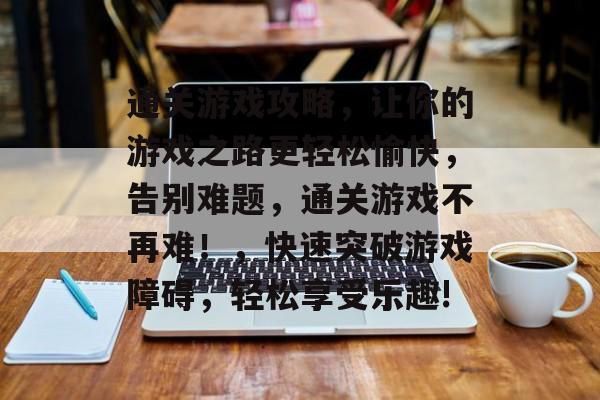 通关游戏攻略，让你的
游戏之路更轻松愉快，
告别难题，通关游戏不
再难！，快速突破游戏
障碍，轻松享受乐趣!